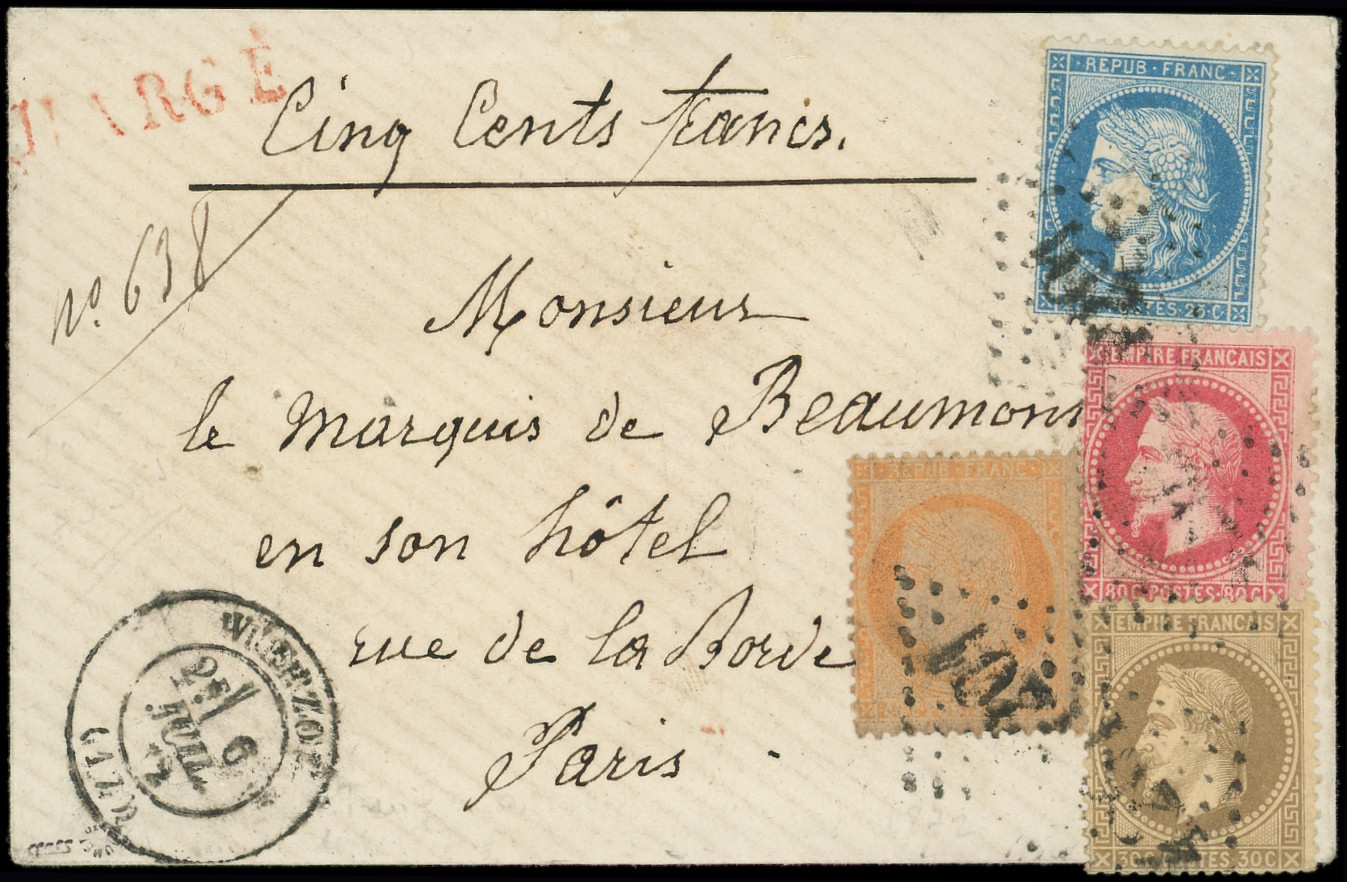 CHARGÉ
Cinq Cents francs.
No. 638
Monsieur
le Marquis de Beaumont
en son hôtel
rue de la Borde
Paris
REPUB·FRANC·
EMPIRE FRANÇAIS
80C·POSTES·80C
REPUB·FRANC·
EMPIRE FRANÇAIS
30C·POSTES·30C
VIERZON
2E/
6
JUIL.
(17)